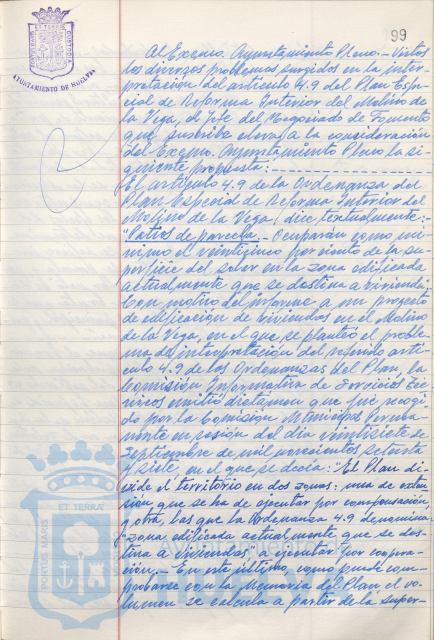 99
AYUNTAMIENTO DE HUELVA
Al Excmo. Ayuntamiento Pleno.- Vistos
los diversos problemas surgidos en la inter-
pretación del artículo 4.9 del Plan Espe-
cial de Reforma Interior del Molino de
la Vega, el Jefe del Negociado de Fomento
que suscribe eleva a la consideración
del Excmo. Ayuntamiento Pleno la si-
guiente propuesta:
El artículo 4.9 de la Ordenanza del
Plan Especial de Reforma Interior del
Molino de la Vega, dice textualmente:-
"Patios de parcela.- Ocuparán como mí-
nimo el veinticinco por ciento de la su-
perficie del solar en la zona edificada
actualmente que se destina a vivienda.
Con motivo del informe a un proyecto
de edificación de viviendas en el Molino
de la Vega, en el que se planteó el proble-
ma de interpretación del referido artí-
culo 4.9 de las Ordenanzas del Plan, la
Comisión Informativa de Servicios Téc-
nicos emitió dictamen que fue recogi-
do por la Comisión Municipal Perma-
nente en sesión del día veintisiete de
septiembre de mil novecientos setenta
y siete, en el que se decía: "El Plan di-
vide el territorio en dos zonas: una de exten-
sión que se ha de ejecutar por compensación,
y otra, las que la Ordenanza 4.9 denomina
"zona edificada actualmente que se des-
tina a viviendas" a ejecutar por coopera-
ción.- En este último, como puede com-
probarse con la Memoria del Plan el vo-
lumen se calcula a partir de la super-
PORTUS MARIS
ET TERRAE